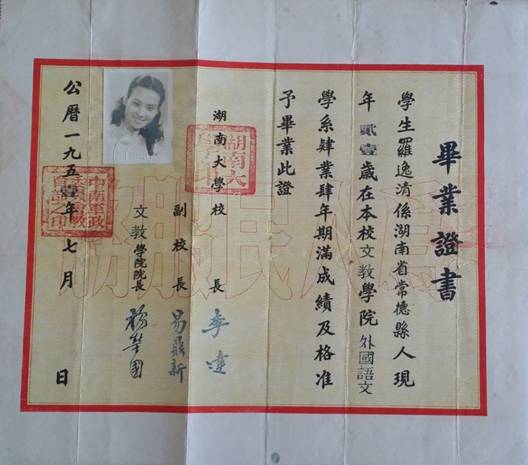 畢業證書
學生羅逸清係湖南省常德縣人現
年貳壹歲在本校文教學院外國語文
學系肄業肆年期滿成績及格准
予畢業此證
湖南大學校長 李達
副校長 易鼎新
文教學院院長 楊榮國
公曆一九五壹年七月 日
為人民服務
湖南大